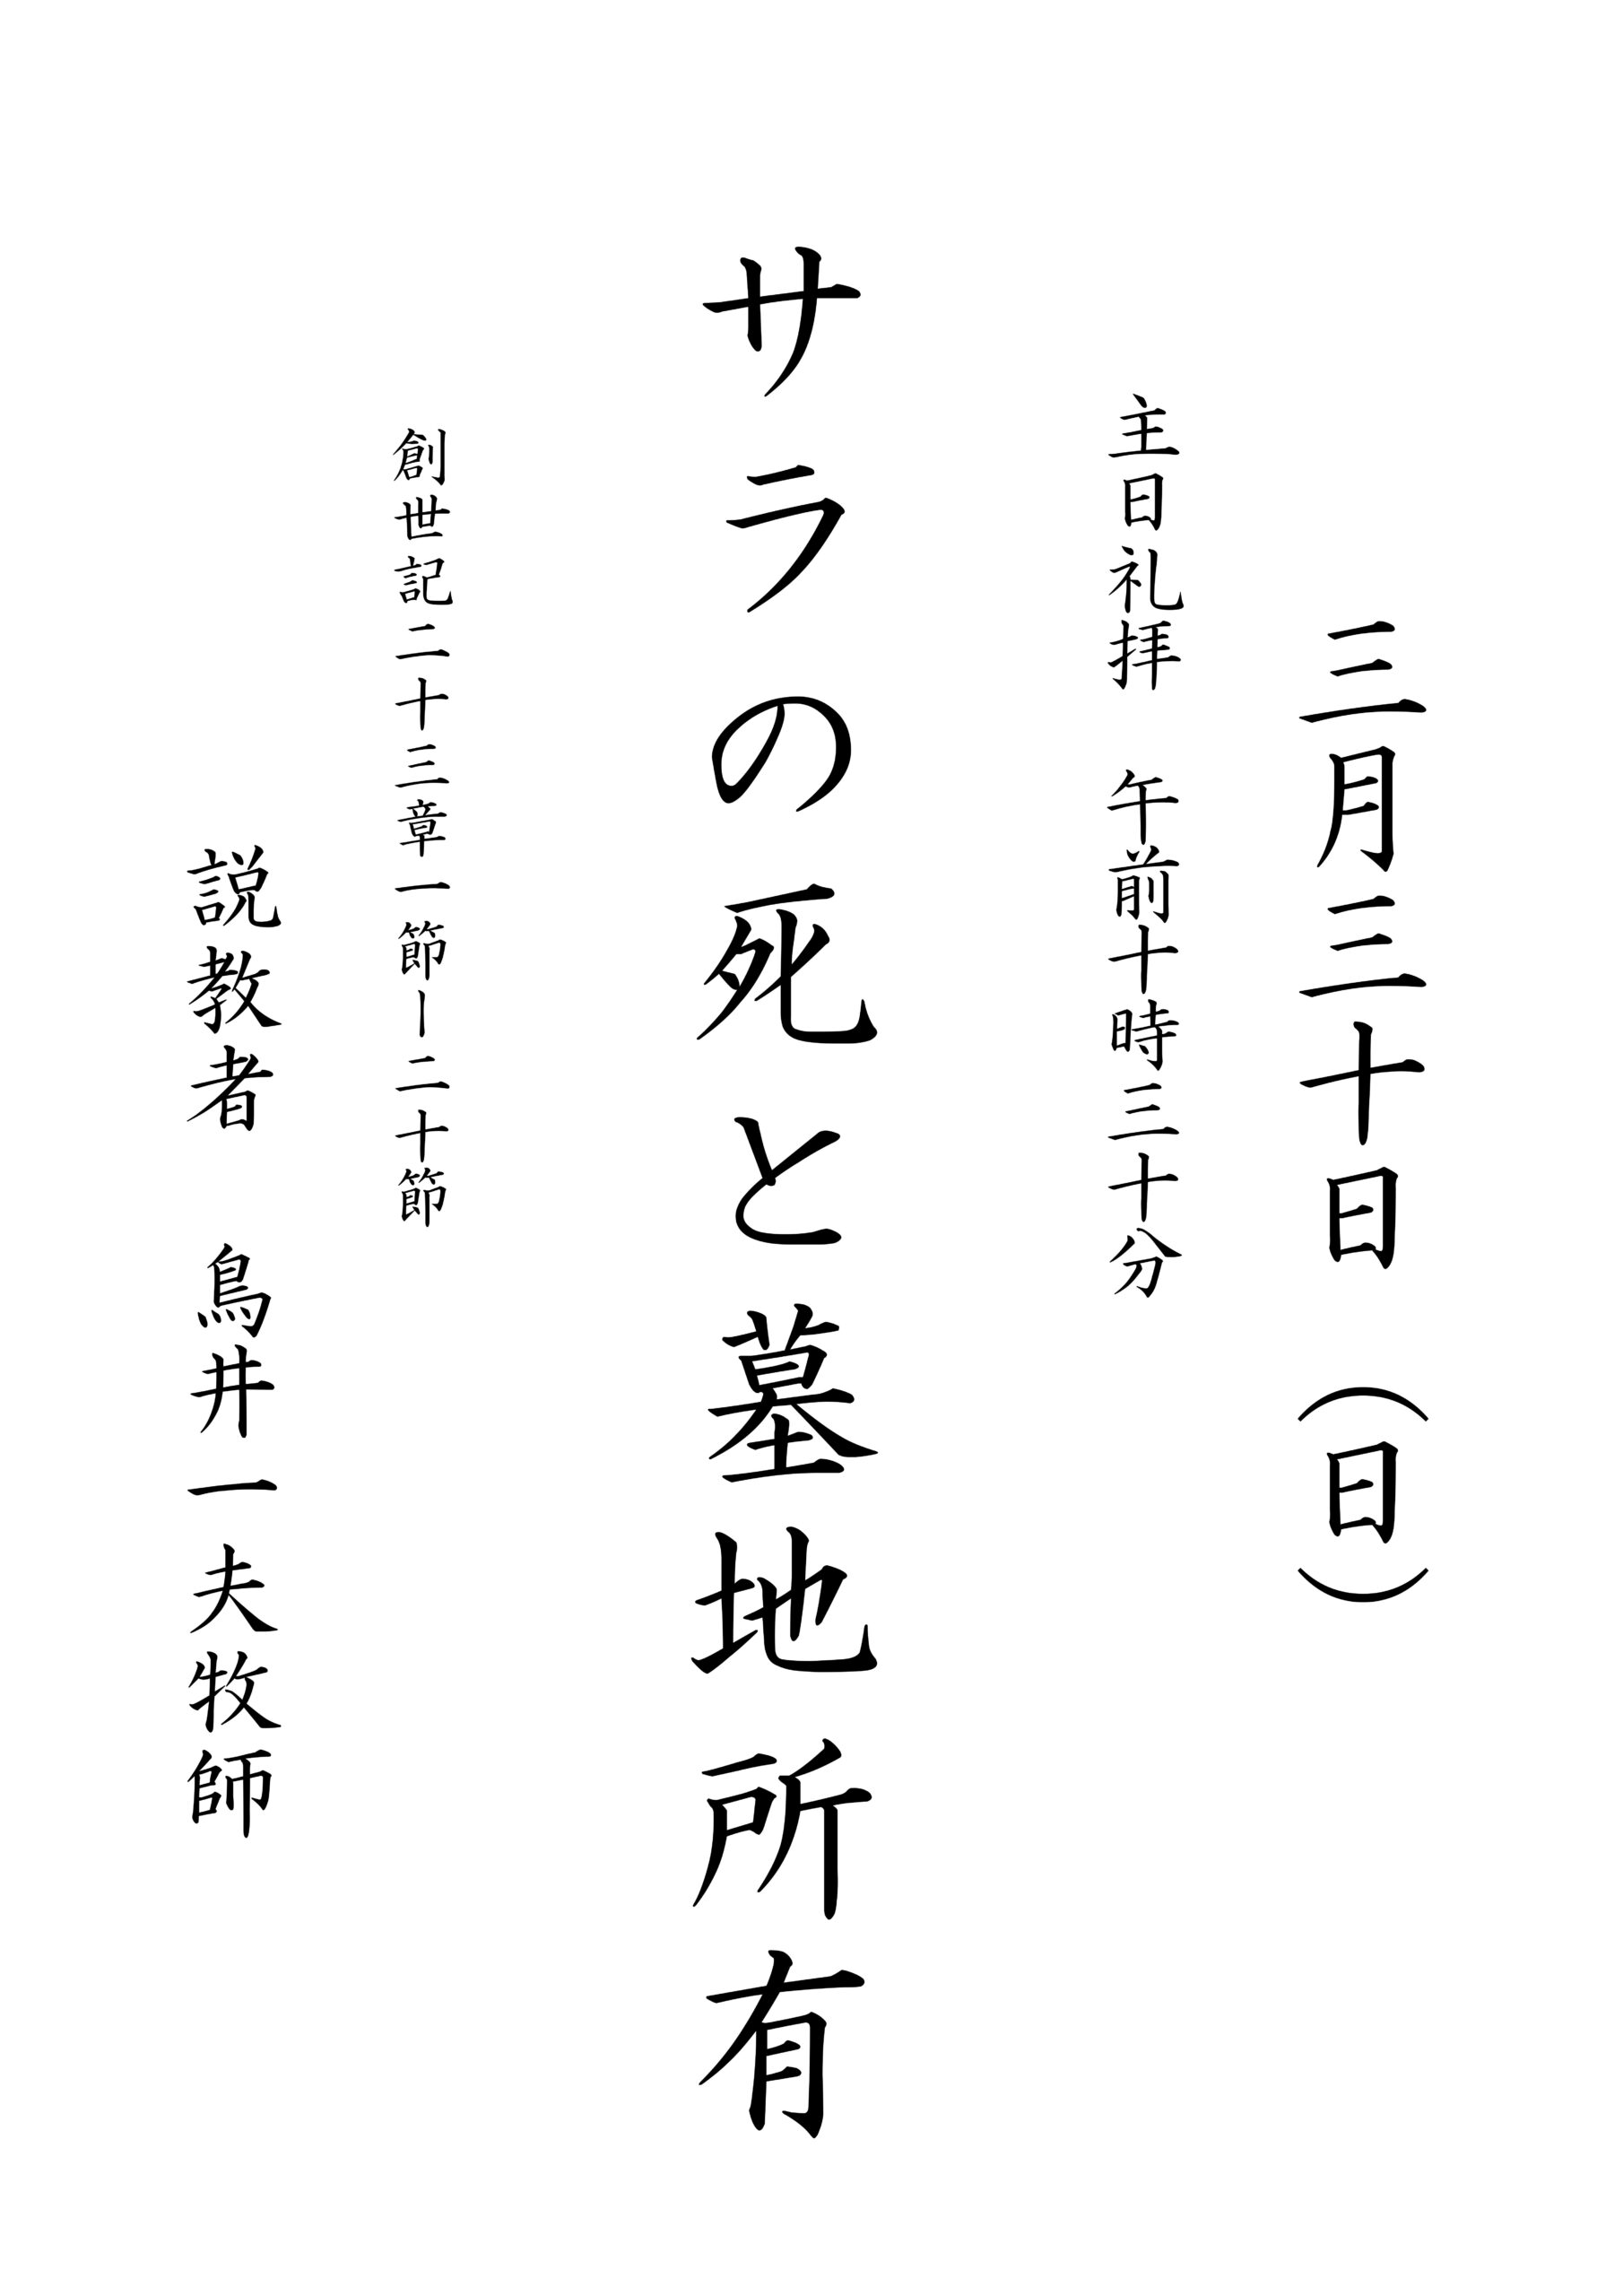 三月三十日（日）
主日礼拝　午前十時三十分
サラの死と墓地所有
創世記二十三章一節―二十節
説教者　鳥井一夫牧師